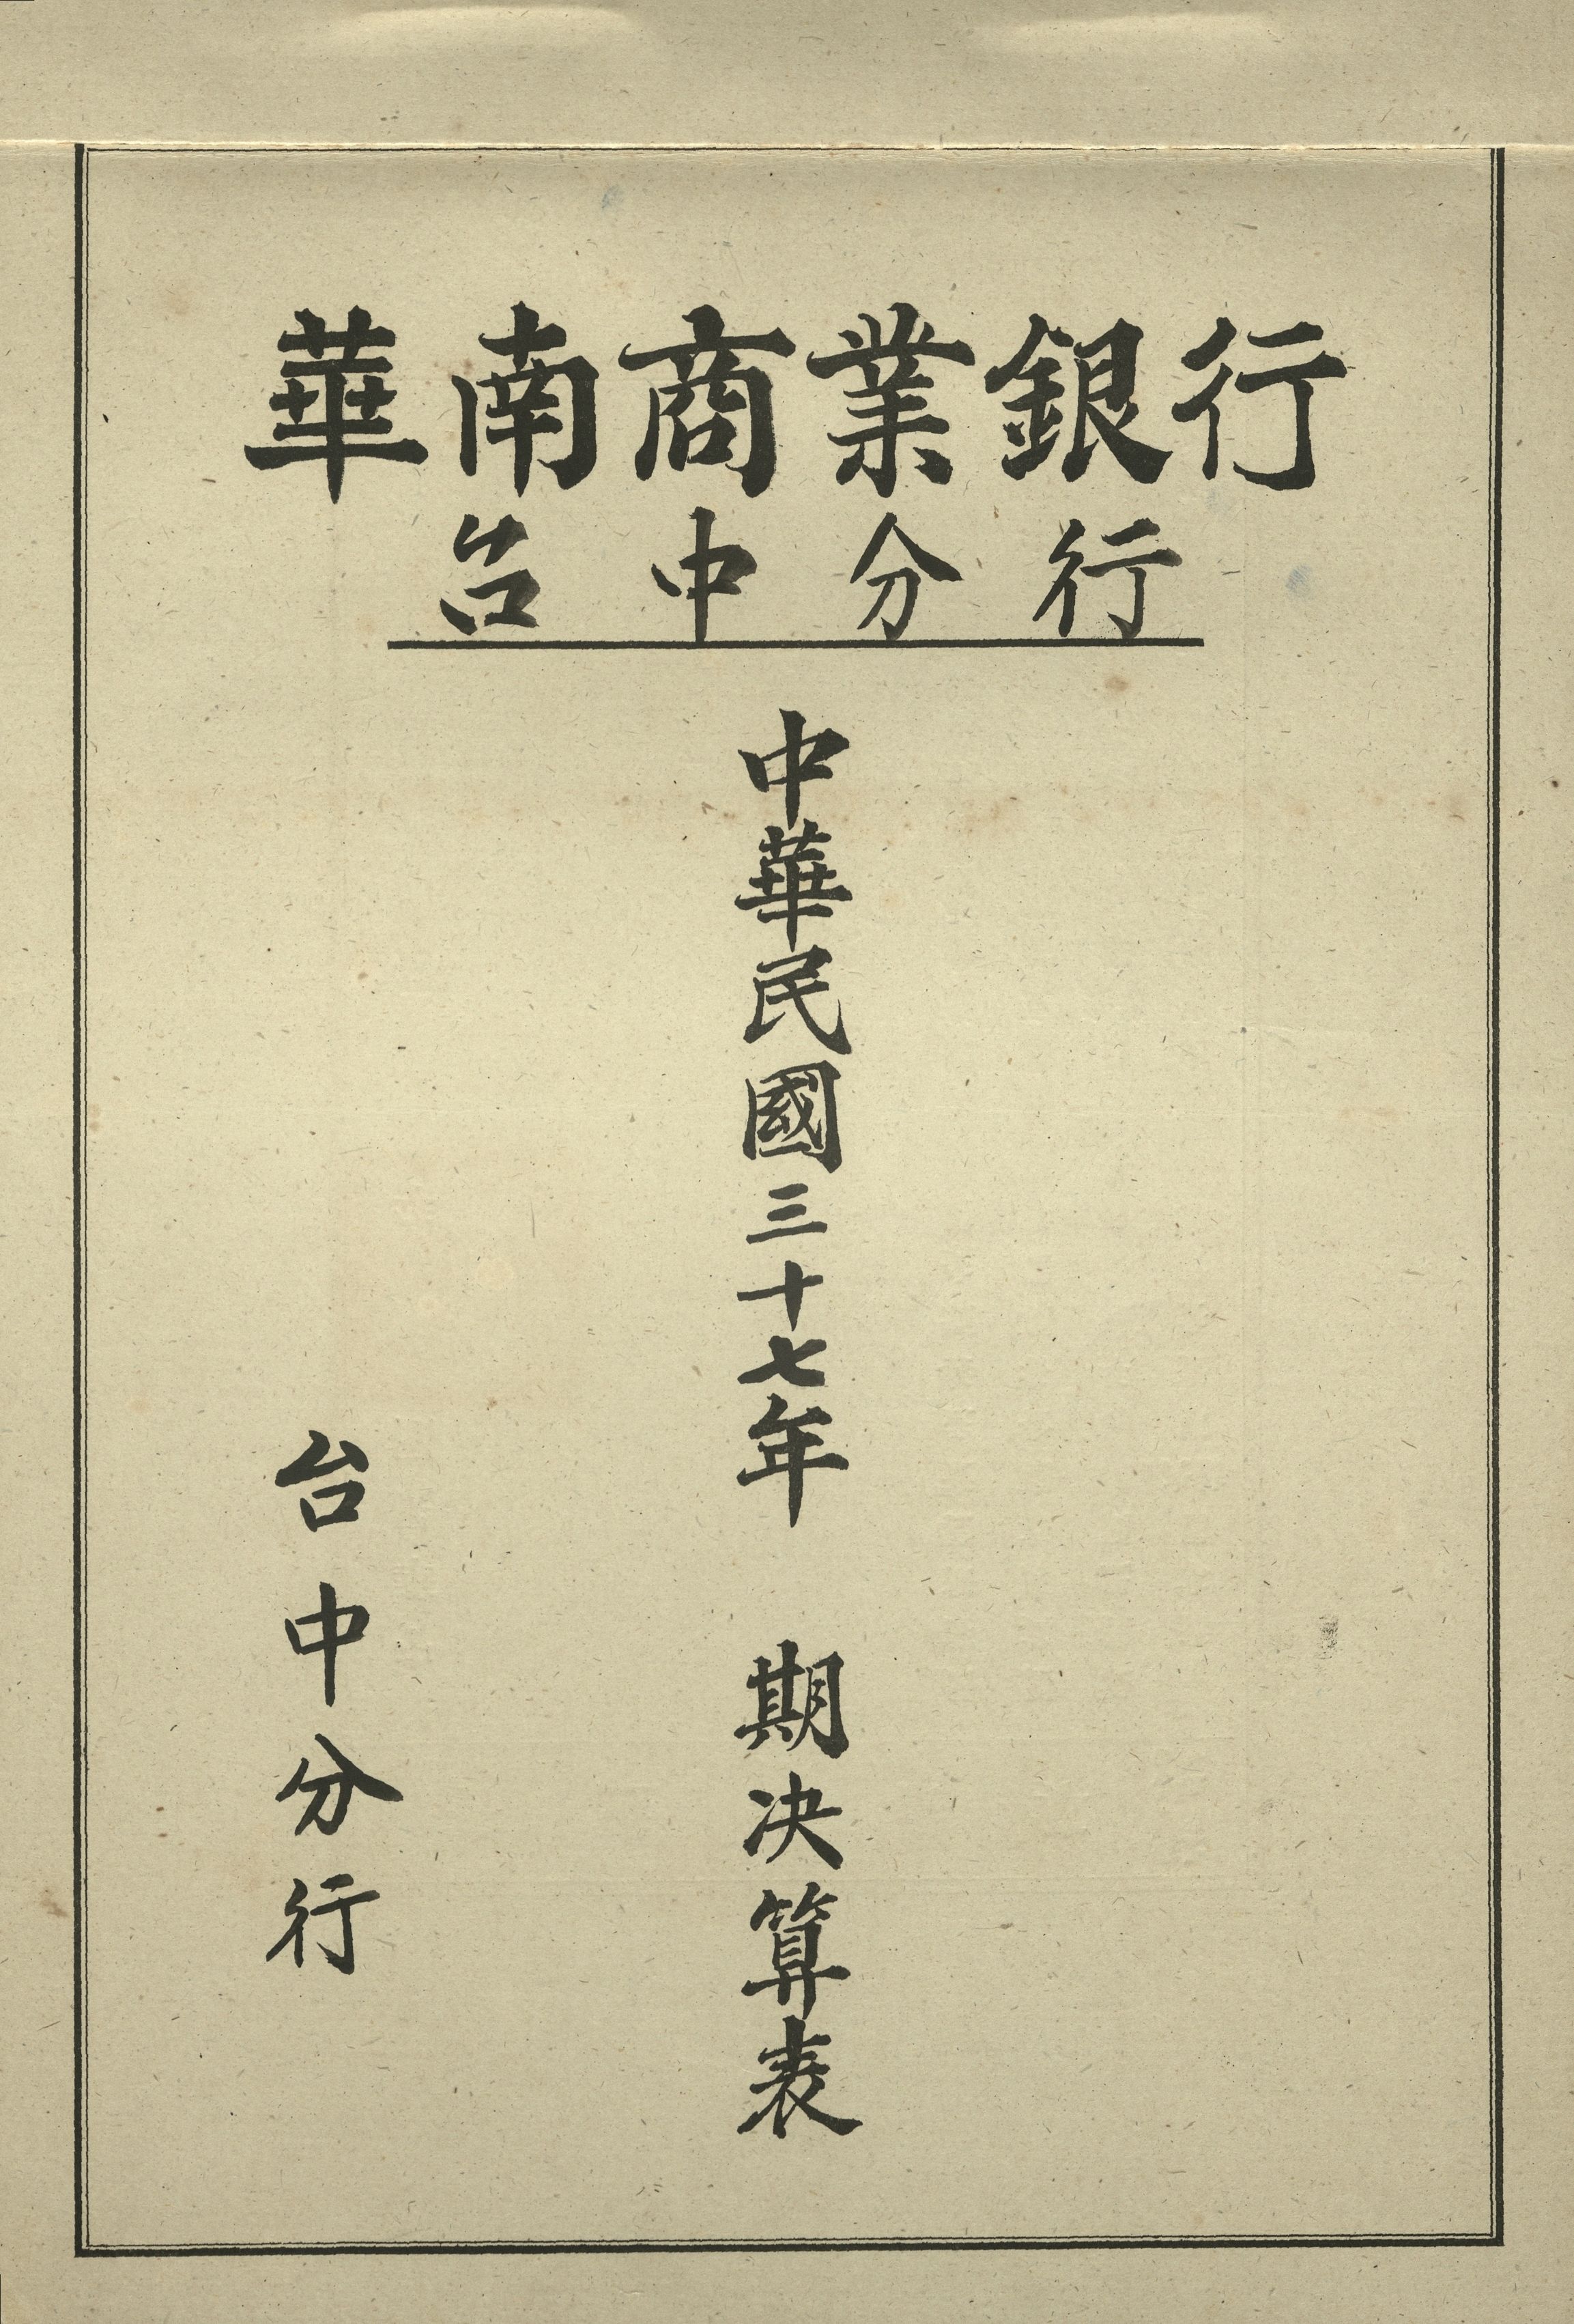 華南商業銀行
台中分行
中華民國三十七年 期決算表
台中分行